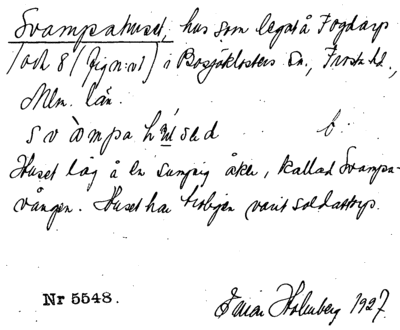 Svampahuset, hus som legat å Fogdarp
1 och 8 (Äg n:r 1) i Bosjöklosters Sn., Frosta hd,
Mlm. län.
svàmpa húsəd b.
Huset låg å en sumpig åker, kallad Svampa-
vången. Huset har troligen varit soldattorp.
Nr 5548. Einar Holmberg 1927.